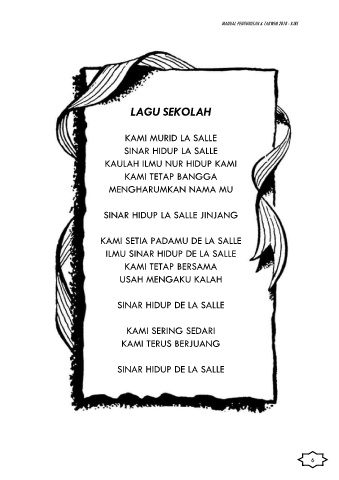 MANUAL PENGURUSAN & TAKWIM 2018 - KJNS
LAGU SEKOLAH
KAMI MURID LA SALLE
SINAR HIDUP LA SALLE
KAULAH ILMU NUR HIDUP KAMI
KAMI TETAP BANGGA
MENGHARUMKAN NAMA MU
SINAR HIDUP LA SALLE JINJANG
KAMI SETIA PADAMU DE LA SALLE
ILMU SINAR HIDUP DE LA SALLE
KAMI TETAP BERSAMA
USAH MENGAKU KALAH
SINAR HIDUP DE LA SALLE
KAMI SERING SEDARI
KAMI TERUS BERJUANG
SINAR HIDUP DE LA SALLE
6